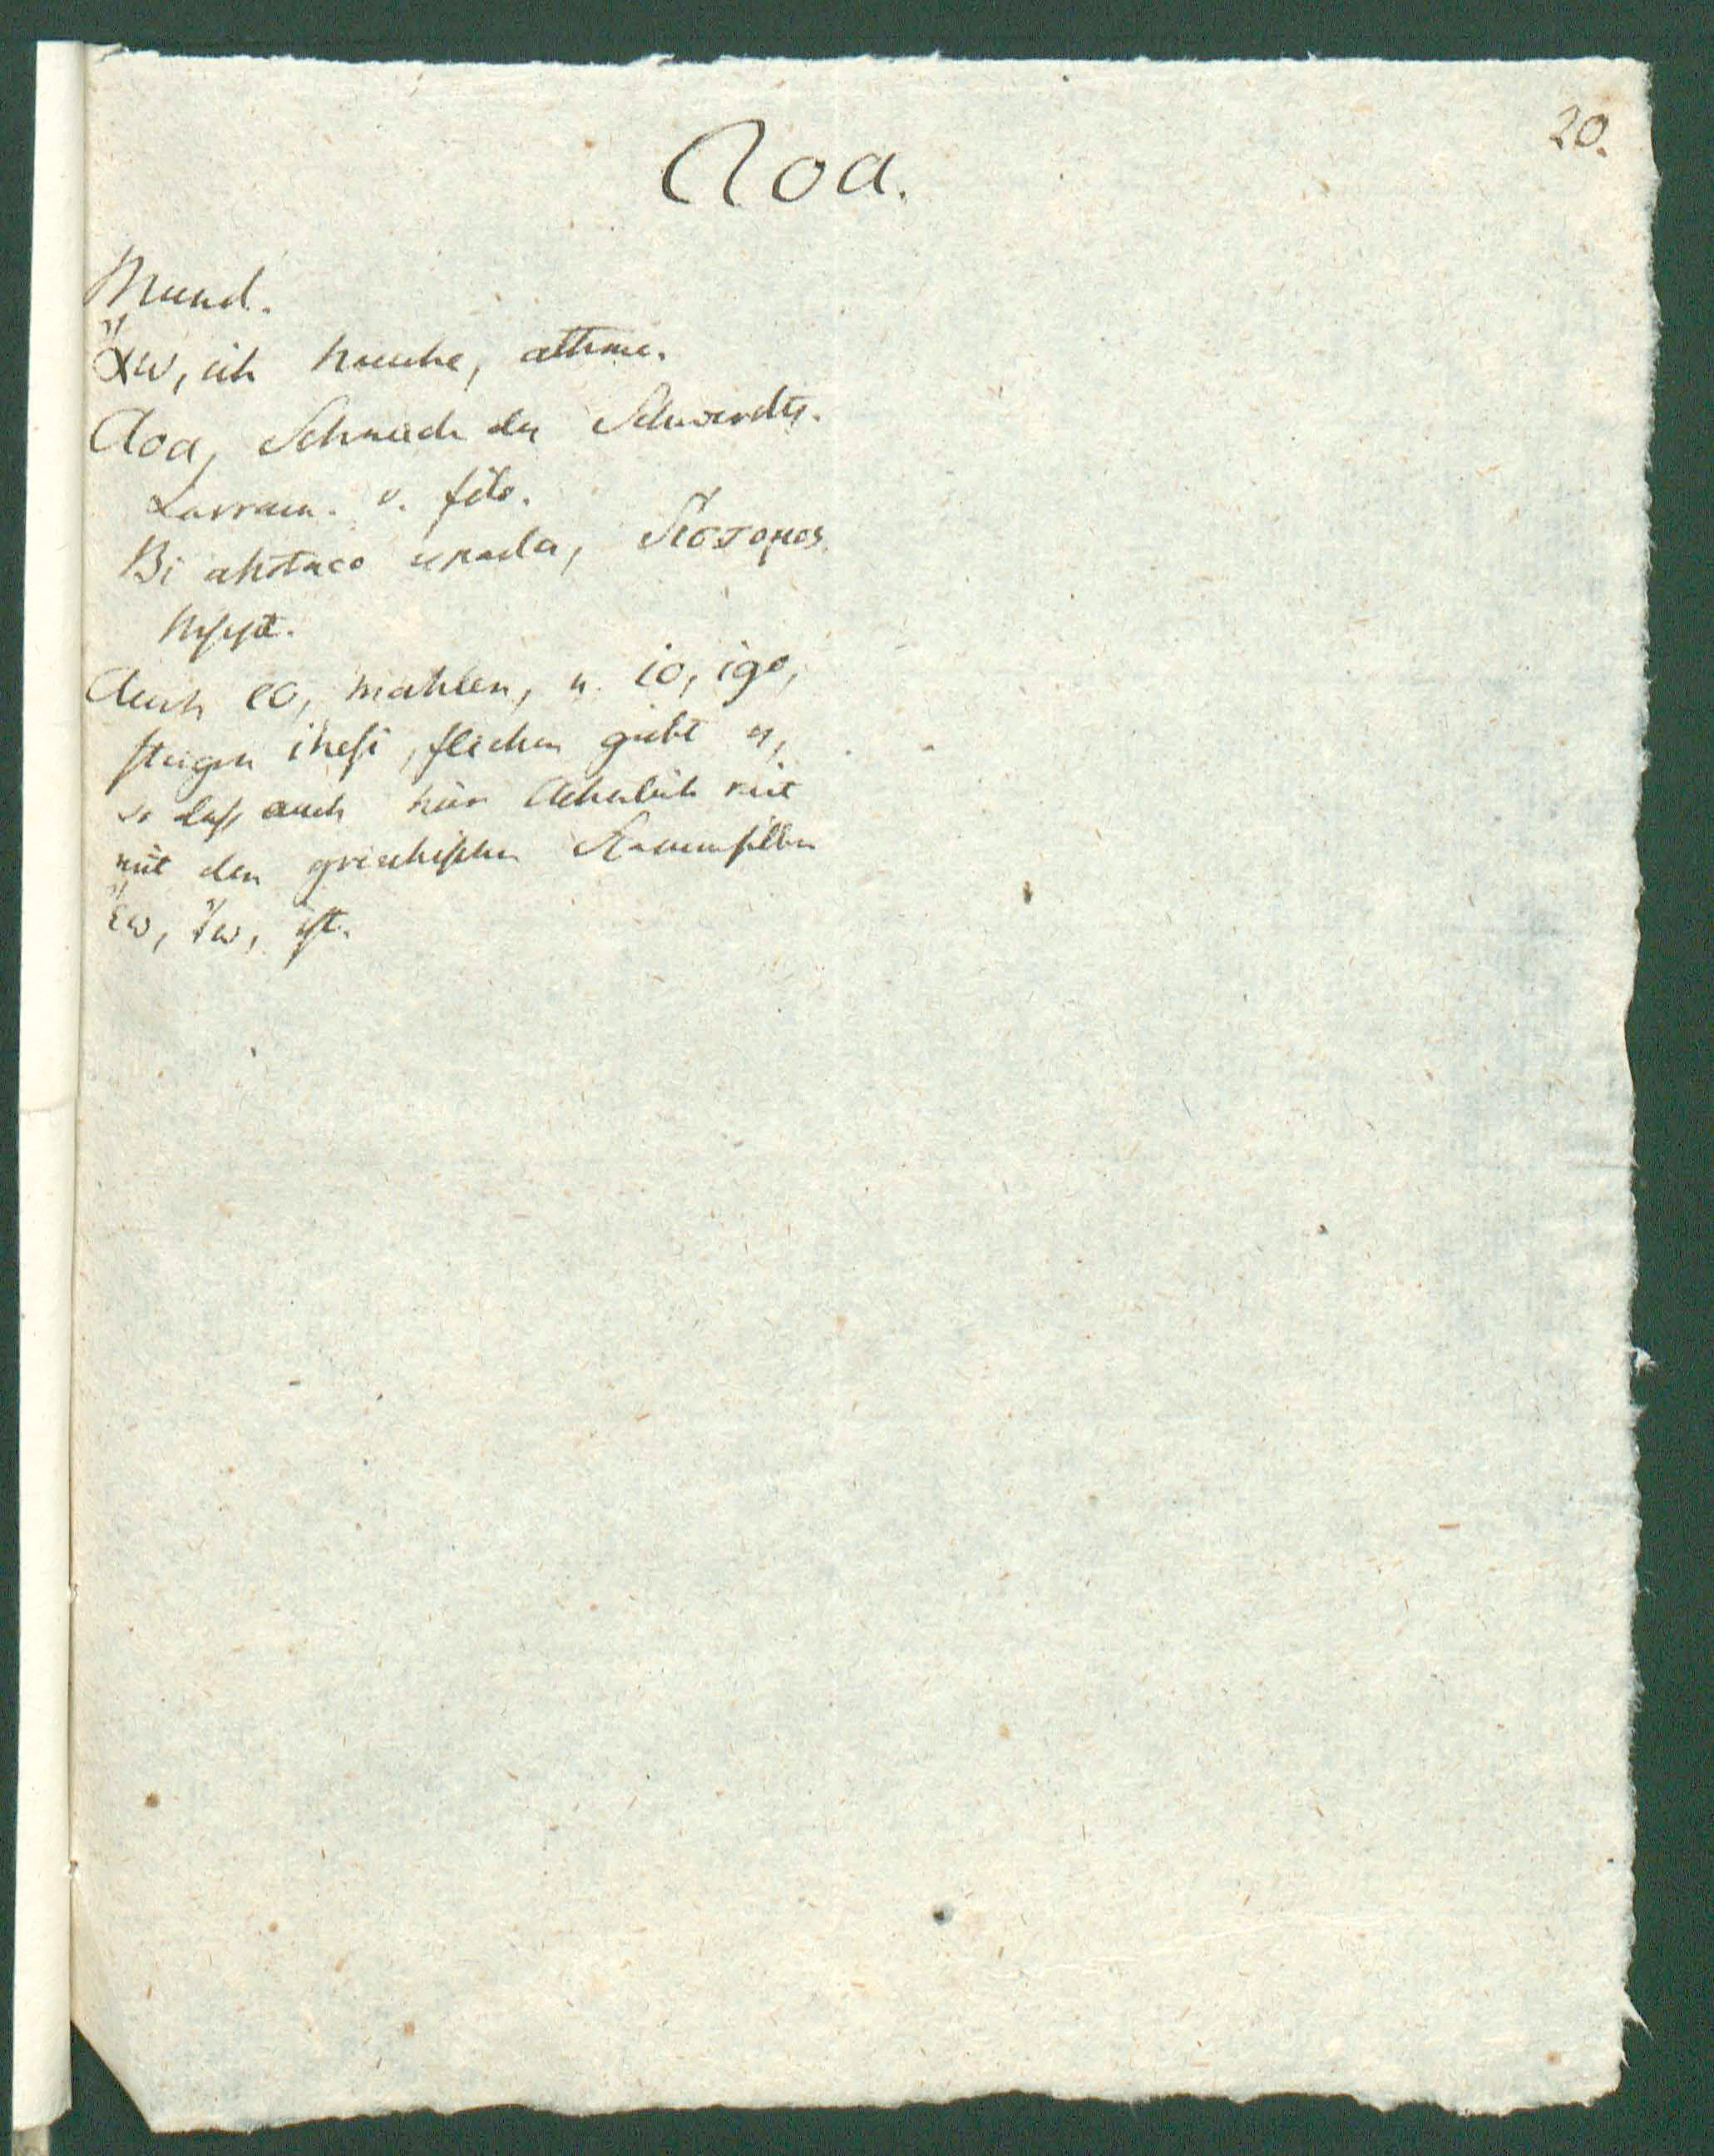 20.
Aoa.
Mund.
ἄω, ich hauche, athme.
Aoa, Schneide des Schwerdts.
Larram. v. filo.
Bi ahotaco ezpada, δίστομος
Mspt.
Auch eo, mahlen, u. io, igo,
steigen ihesi, fliehen giebt es,
so daß auch hier Aehnlichkeit
mit den griechischen Stammsilben
ἕω, ἵω, ist.